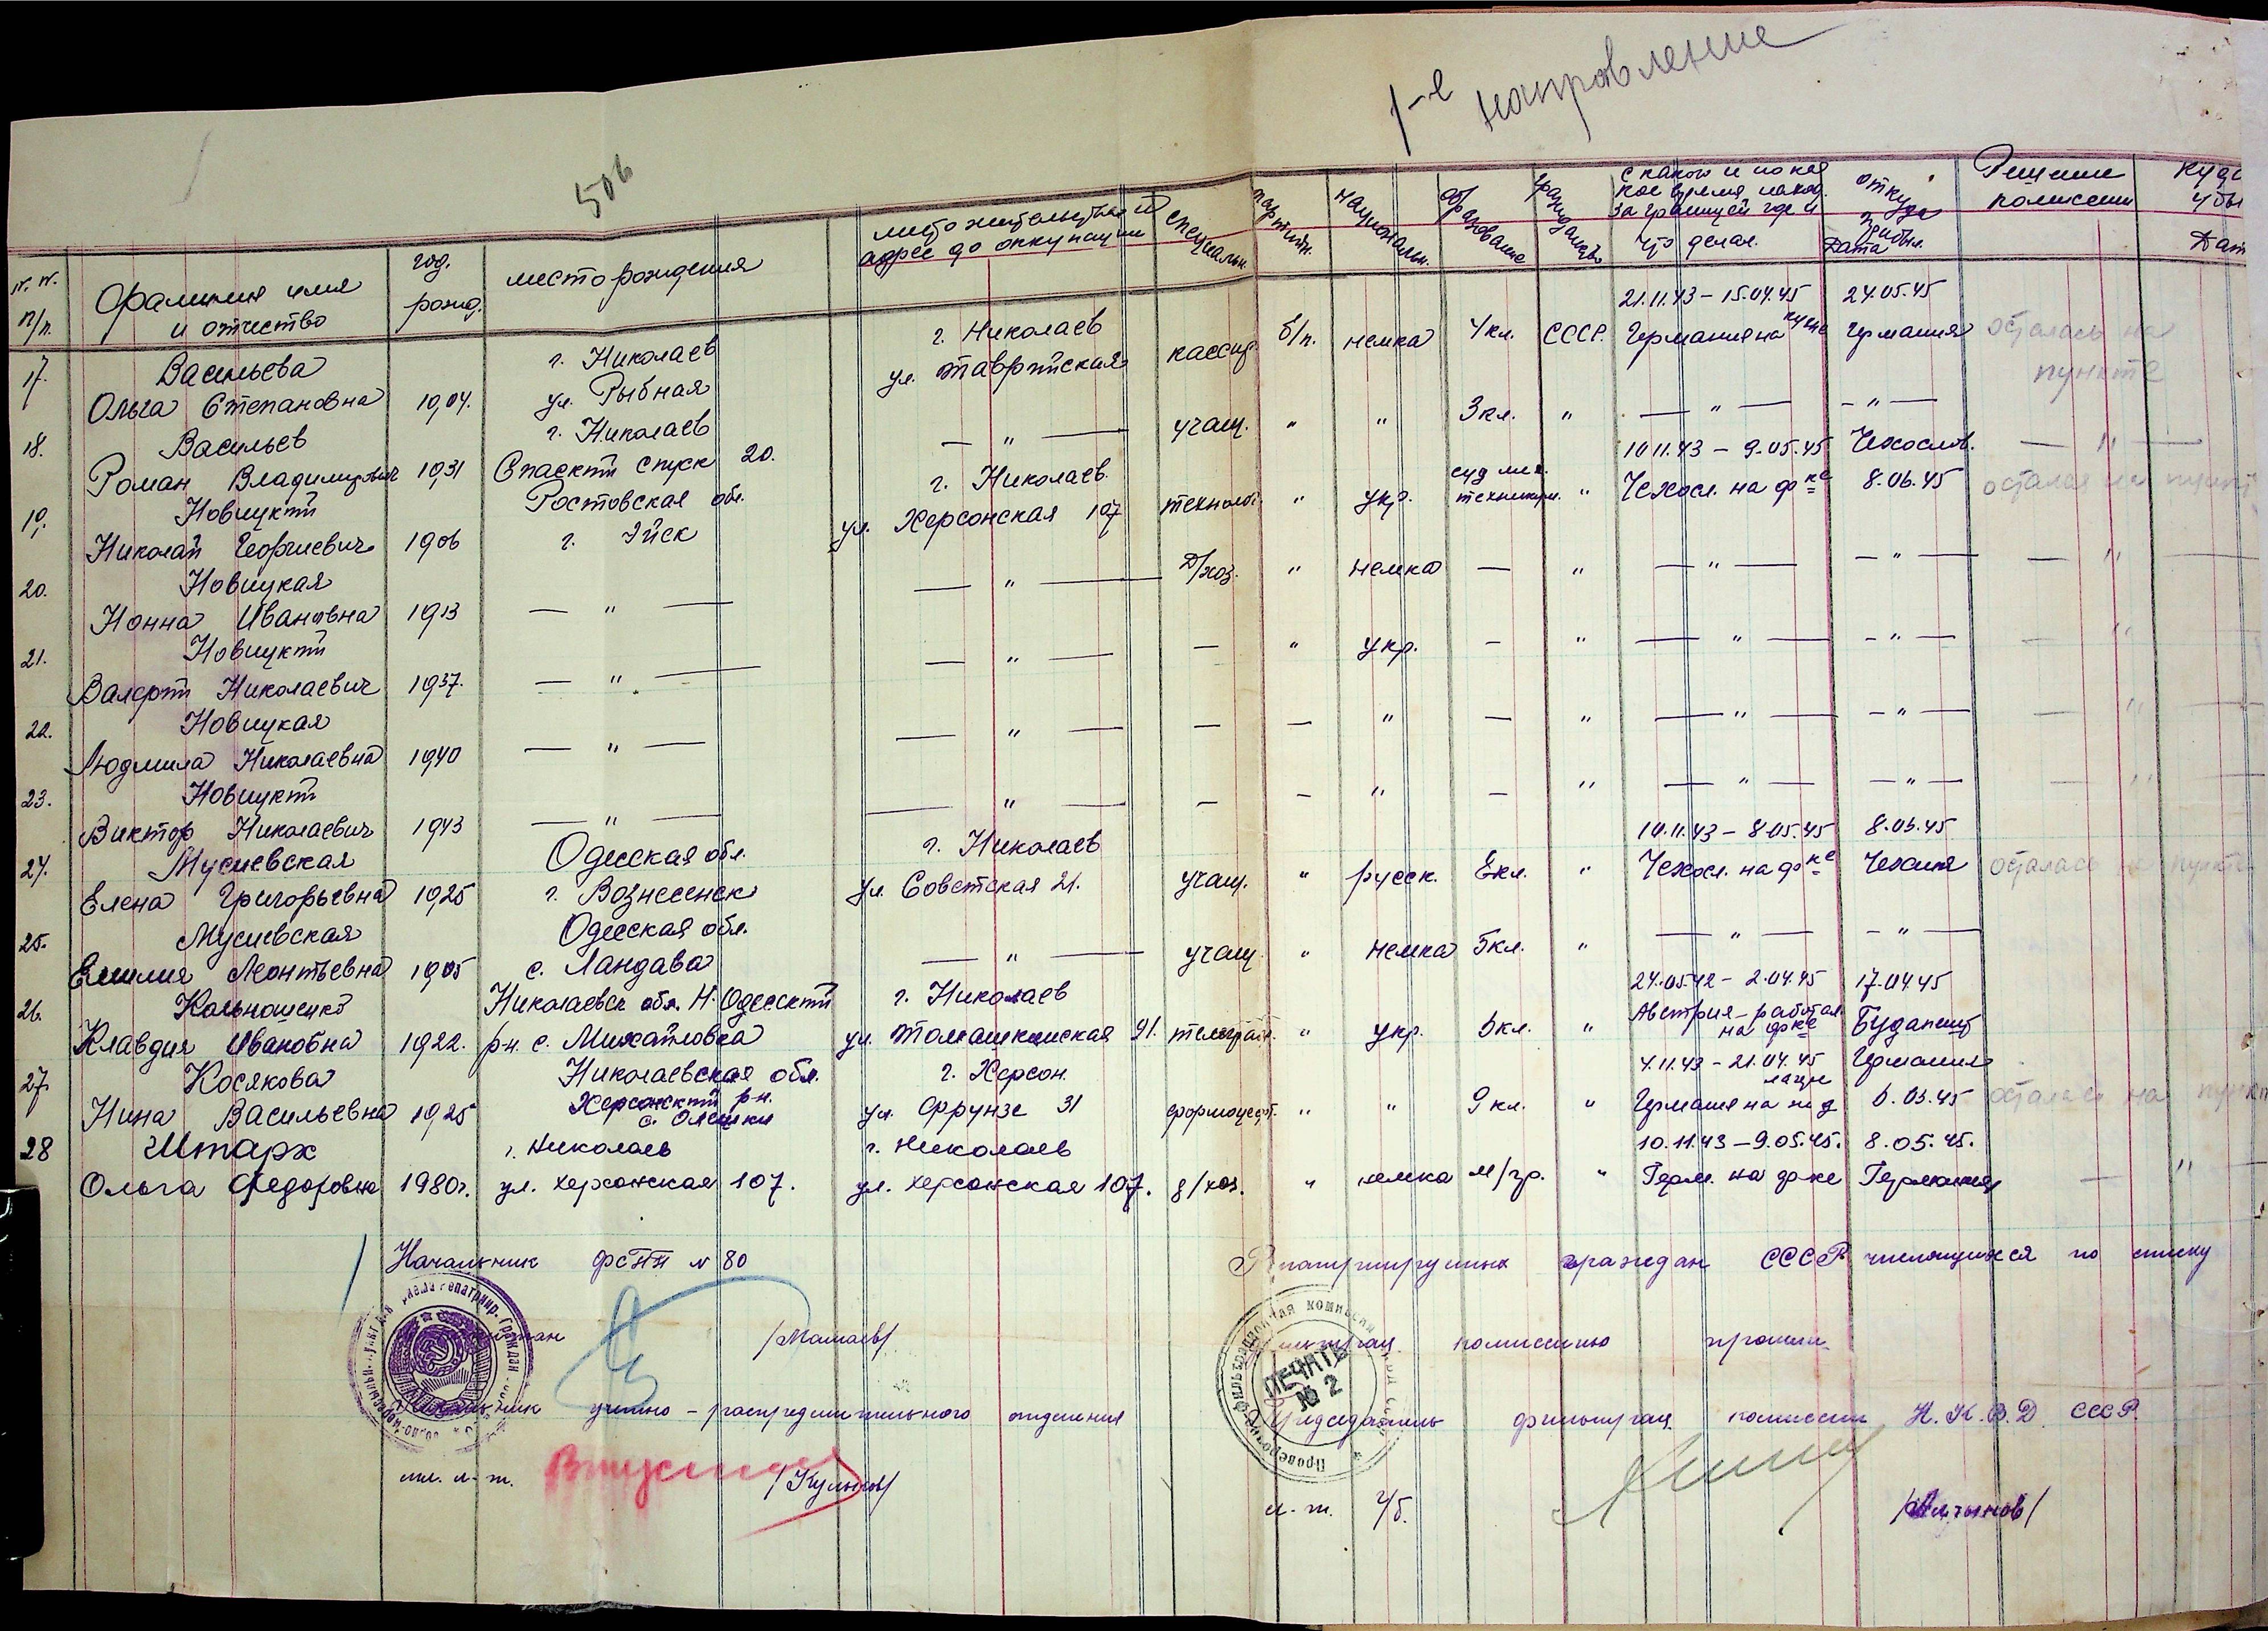 1-е направление
506
№ №
п/п.
Фамилия имя
и отчество
год.
рожд.
место рождения
место жительства и
адрес до оккупации
специальн.
партийн.
национальн.
образование
гражданств.
с какого и по ка
кое время наход.
за границей где и
что делал.
откуда
прибыл.
дата
Решение
комиссии
Дат
17. Васильева г. Николаев г. Николаев 21.11.43 – 15.04.45 24.05.45
Ольга Степановна 1904. ул. Рыбная ул. Таврийская кассир б/п. немка 4 кл. СССР. Германия на кухне Германия осталась на
пункте
18. Васильев г. Николаев — " — учащ. " " 3 кл. " — " — — " —
Роман Владимирович 1931 Спаский спуск 20.
19. Новицкий Ростовская обл. г. Николаев 10 11.43 – 9.05.45 Чехослов. — " —
Николай Георгиевич 1906 г. Эйск ул. Херсонская 107 технолог. " укр. техникум. " Чехосл. на ф-ке 8.06.45 остался на пункт
20. Новицкая
Нонна Ивановна 1913 — " — — " — д/хоз. " немка — " — " — — " — — " —
21. Новицкий
Валерий Николаевич 1937. — " — — " — — " укр. — " — " — — " — — " —
22. Новицкая
Людмила Николаевна 1940 — " — — " — — — " — " — " — — " — — " —
23. Новицкий
Виктор Николаевич 1943 — " — — " — — — " — " — " — — " — — " —
24. Мусиевская Одесская обл. г. Николаев 10.11.43 – 8.05.45 8.05.45
Елена Григорьевна 1925 г. Вознесенск ул. Советская 21. учащ. " русск. 8кл. " Чехосл. на ф-ке Чехия осталась пункте
25. Мусиевская Одесская обл.
Емилия Леонтьевна 1905 с. Ландава — " — учащ. " немка 5кл. " — " — — " —
26. Кольнашенко Николаевск обл. Н. Одесский г. Николаев 24.05.42 – 2.04.45 17.04.45
Клавдия Ивановна 1922. р-н. с. Михайловка ул. 91. телеграф. " укр. 6кл. " Австрия – работал на ф-ке Будапешт
27. Косякова Николаевская обл. г. Херсон. 4.11.43 – 21.04.45 Германия
Нина Васильевна 1925 Херсонский р-н. ул. Фрунзе 31 " " 9 кл. " Германия на 6.05.45 осталась на пункт
с. Олешки
28 Штарх г. Николаев г. Николаев 10.11.43 – 9.05.45. 8.05.45.
Ольга Федоровна 1980г. ул. Херсонская 107. ул. Херсонская 107. д/хоз. " немка м/гр. " Герм. на ф-ке Германия — " —
Начальник ФСПП № 80
/Мамаев/
Начальник учетно – распределительного отделения
мл. л-т.
/Кульков/
Репатриируемых граждан СССР числящихся по списку
фильтрац. комиссию прошли.
ПЕЧАТЬ
№ 2
Председатель фильтрац. комиссии Н. К. В. Д. СССР.
л-т. г/б.